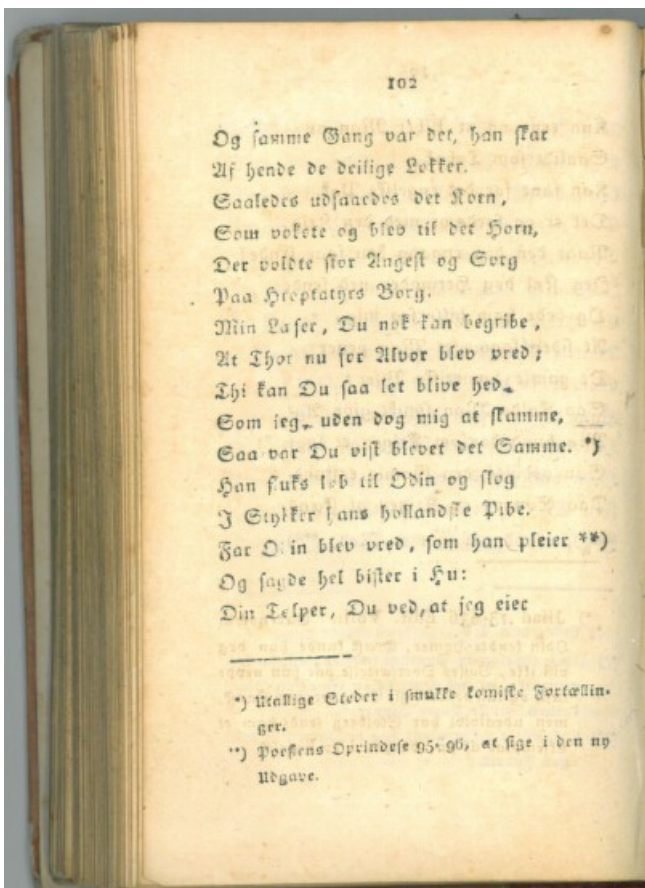 102
Og samme Gang var det, han skar
Af hende de deilige Lokker.
Saaledes udsaaedes det Korn,
Som voxte og blev til det Horn,
Der voldte stor Angest og Sorg
Paa Hroptatyrs Borg.
Min Læser, Du nok kan begribe,
At Thor nu for Alvor blev vred;
Thi kan Du saa let blive hed,
Som jeg, uden dog mig at skamme,
Saa var Du vist blevet det Samme. *)
Han fluks løb til Odin og slog
I Stykker hans hollandske Pibe.
Far Odin blev vred, som han pleier **)
Og sagde hel bister i Hu:
Din Tølper, Du ved, at jeg eier
*) Utallige Steder i smukke komiske Fortællin-
ger.
**) Poesiens Oprindelse 95-96, at sige i den ny
Udgave.